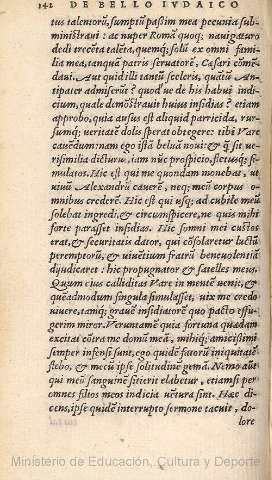 142 DE BELLO IVDAICO
tus talentorũ, sumptũ passim mea pecunia sub-
ministraui : ac nuper Romã quoq; nauigaturo
dedi trecẽta talẽta, quemq; solũ ex omni fami-
lia mea, tanquã patris seruatorẽ, Cæsari cõmẽ-
daui. Aut quid illi tantũ sceleris, quãtũ An-
tipater admiserũt ? quod ue de his habui indi-
cium, quale demõstrauit huius insidias ? etiam
approbo, quia ausus est aliquid parricida, rur-
sumq; veritatẽ dolis sperat obtegere: tibi Vare
cauẽdum: nam ego istã beluã noui: & q̃ sit ve-
risimilia dicturu, iam nũc prospicio, fletusq; si-
mulatos. Hic est qui me quondam monebat, ut
uiuũ Alexandrũ cauerẽ, neq; meũ corpus o-
mnibus crederẽ. Hic est qui usq; ad cubile meũ
solebat ingredi, & circumspicere, ne quis mihi
forte parasset insidias. Hic somni mei custos
erat, & securitatis dator, qui cõsolaretur luctũ
peremptorũ, & uiuẽtium fratrũ beneuolentiã
dijudicaret : hic propugnator & satelles meus.
Quum eius calliditas Vare in mentẽ uenit, &
quẽadmodum singula simulasset, uix me credo
uiuere, tamq; grauẽ insidiatorẽ quo pacto effu-
gerim miror. Verũtamẽ quia fortuna quædam
excitat cõtra me domũ meã, mihiq; amicissimi
semper infensi sunt, ego quidẽ fatorũ iniquitatẽ
flebo, & mecũ ipse solitudinẽ gemã. Nemo autẽ
qui meũ sanguinẽ sitierit elabetur, etiamsi per
omnes filios meos indicia uẽtura sint. Hæc di-
cens, ipse quidẽ interrupto sermone tacuit, do-
lore
Ministerio de Educación, Cultura y Deporte